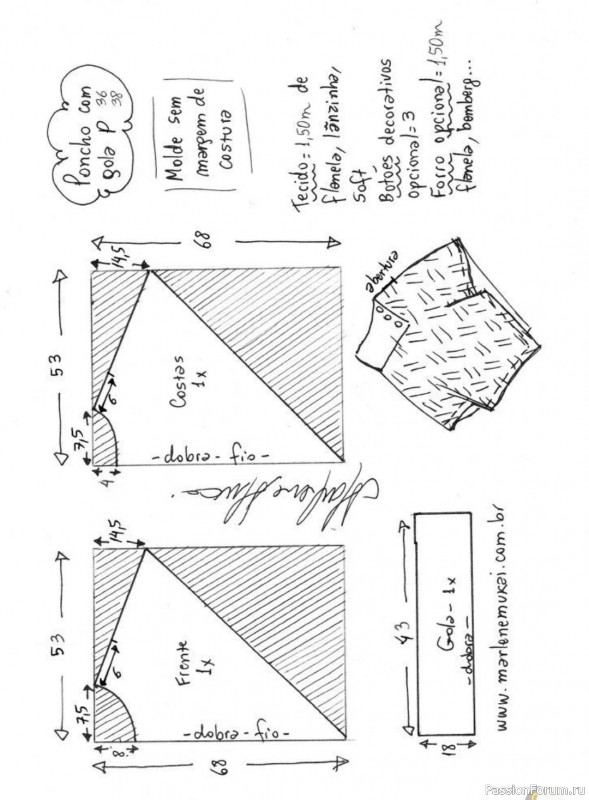 Poncho com
gola P 36
38
Molde sem
margem de
costura
Tecido = 1,50m de
flanela, lãnzinha,
soft
Botões decorativos
opcional = 3
Forro opcional = 1,50m
flanela, bemberg...
53
14,5
68
7,5
4
6
Costas
1x
-dobra-fio-
abertura
53
14,5
68
7,5
8
6
Frente
1x
-dobra-fio-
43
18
Gola - 1x
-dobra-
www.marlenemukai.com.br
PassionForum.ru